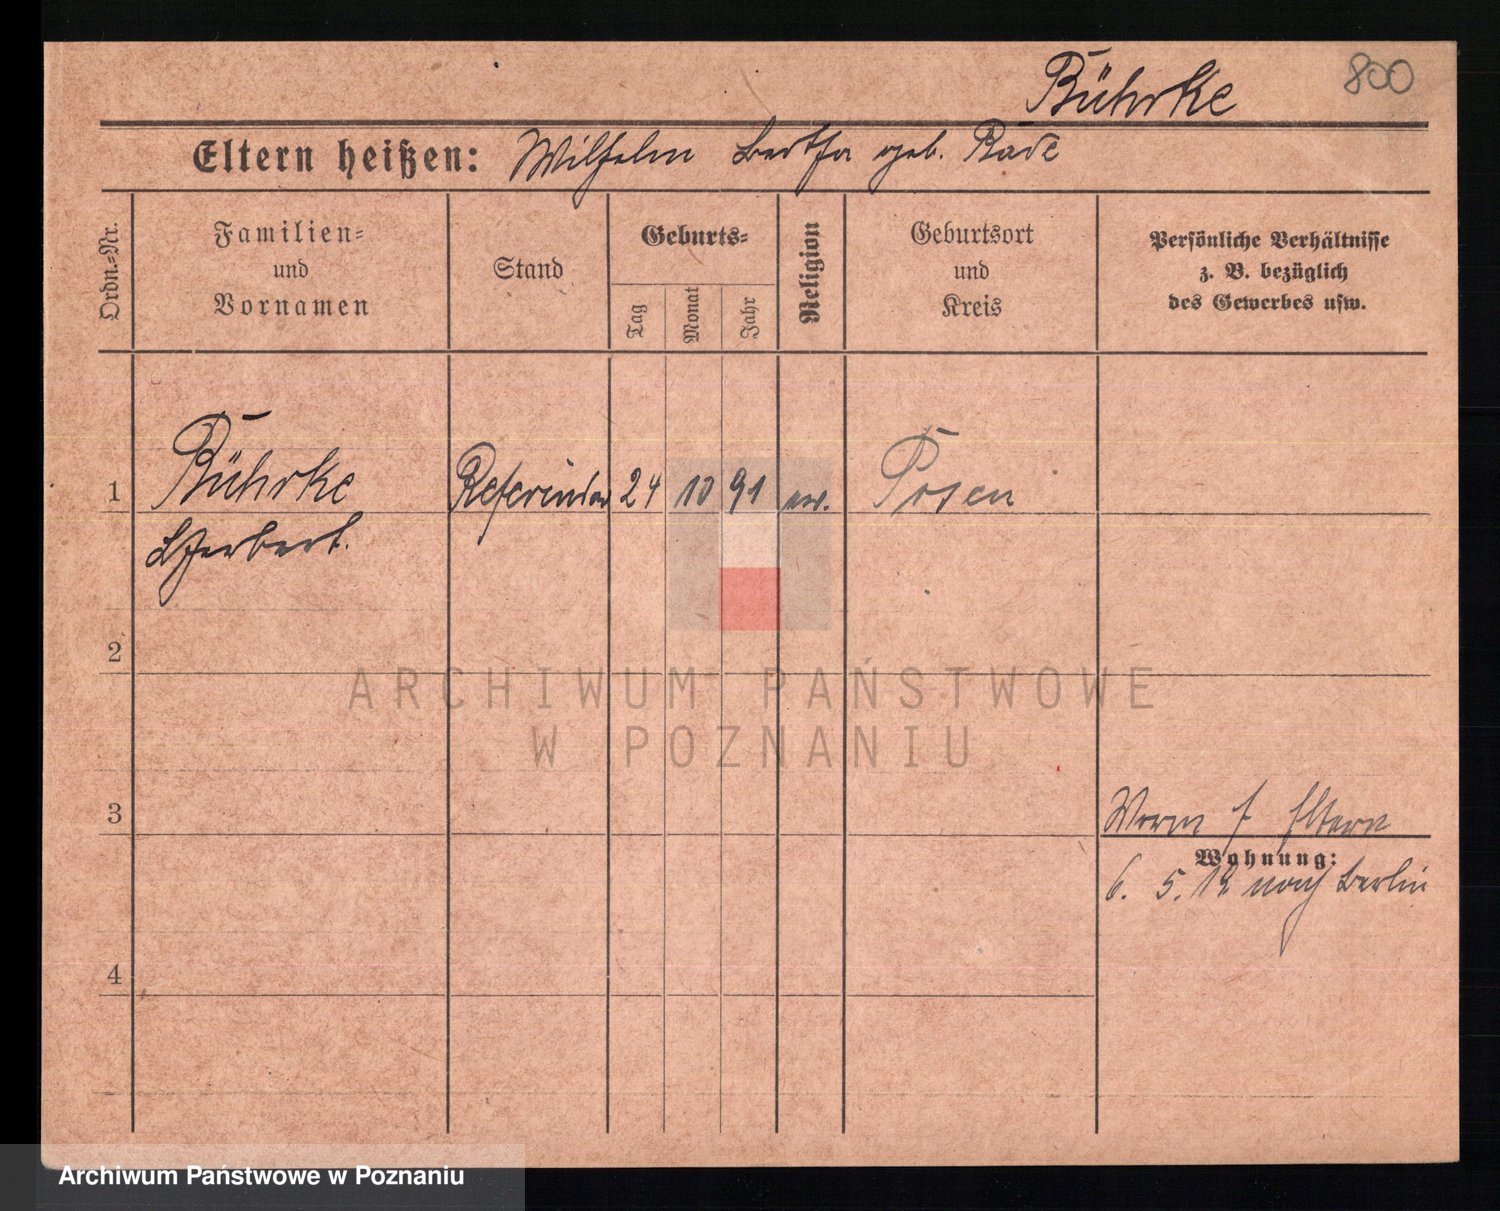 Bührke
800
Eltern heißen: Wilhelm Bertha geb. Rade
Ordn.-Nr.
Familien-
und
Vornamen
Stand
Geburts-
Tag
Monat
Jahr
Religion
Geburtsort
und
Kreis
Persönliche Verhältnisse
z. B. bezüglich
des Gewerbes usw.
1
Bührke
Herbert.
Referendar
24
10
91
ev.
Posen
2
3
4
Eltern
Wohnung:
6. 5. 12 nach Berlin
ARCHIWUM PAŃSTWOWE
W POZNANIU
Archiwum Państwowe w Poznaniu